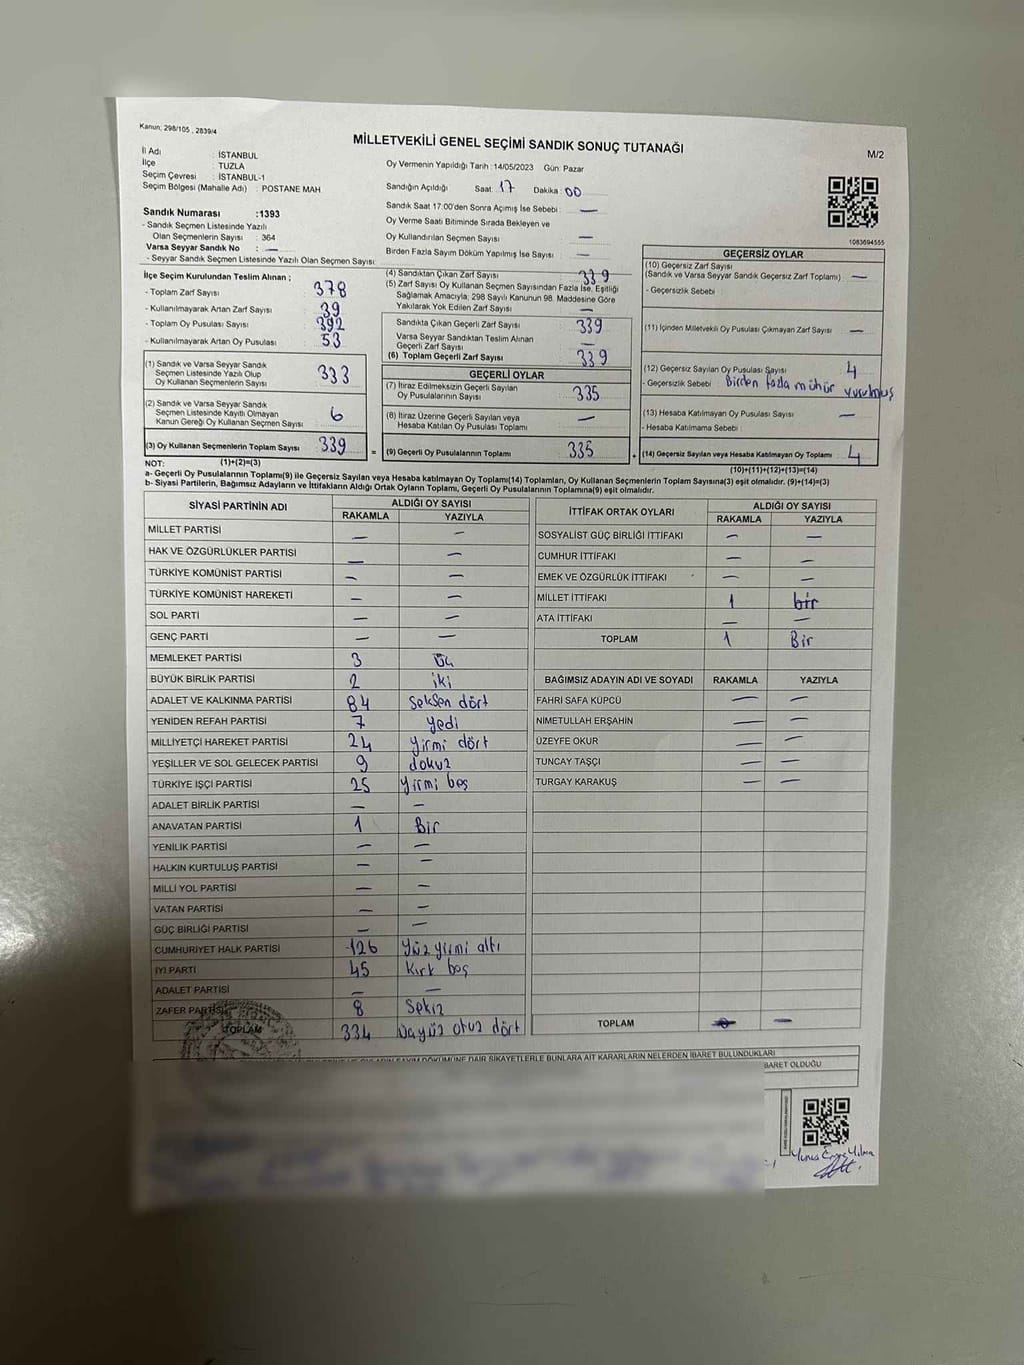 Kanun; 298/105 , 2839/4
MİLLETVEKİLİ GENEL SEÇİMİ SANDIK SONUÇ TUTANAĞI
M/2
İl Adı : İSTANBUL
İlçe : TUZLA
Seçim Çevresi : İSTANBUL-1
Seçim Bölgesi (Mahalle Adı) : POSTANE MAH
Sandık Numarası :1393
- Sandık Seçmen Listesinde Yazılı
Olan Seçmenlerin Sayısı : 364
Varsa Seyyar Sandık No : —
- Seyyar Sandık Seçmen Listesinde Yazılı Olan Seçmen Sayısı:
Oy Vermenin Yapıldığı Tarih : 14/05/2023 Gün: Pazar
Sandığın Açıldığı Saat: 17 Dakika: 00
Sandık Saat 17:00'den Sonra Açımış İse Sebebi : —
Oy Verme Saati Bitiminde Sırada Bekleyen ve
Oy Kullandırılan Seçmen Sayısı —
Birden Fazla Sayım Döküm Yapılmış İse Sayısı : —
1083694555
İlçe Seçim Kurulundan Teslim Alınan ;
- Toplam Zarf Sayısı : 378
- Kullanılmayarak Artan Zarf Sayısı : 39
- Toplam Oy Pusulası Sayısı : 392
- Kullanılmayarak Artan Oy Pusulası : 53
(1) Sandık ve Varsa Seyyar Sandık
Seçmen Listesinde Yazılı Olup
Oy Kullanan Seçmenlerin Sayısı 333
(2) Sandık ve Varsa Seyyar Sandık
Seçmen Listesinde Kayıtlı Olmayan
Kanun Gereği Oy Kullanan Seçmen Sayısı 6
(3) Oy Kullanan Seçmenlerin Toplam Sayısı 339
(1)+(2)=(3)
(4) Sandıktan Çıkan Zarf Sayısı 339
(5) Zarf Sayısı Oy Kullanan Seçmen Sayısından Fazla İse, Eşitliği
Sağlamak Amacıyla, 298 Sayılı Kanunun 98. Maddesine Göre
Yakılarak Yok Edilen Zarf Sayısı —
Sandıkta Çıkan Geçerli Zarf Sayısı 339
Varsa Seyyar Sandıktan Teslim Alınan
Geçerli Zarf Sayısı —
(6) Toplam Geçerli Zarf Sayısı 339
GEÇERLİ OYLAR
(7) İtiraz Edilmeksizin Geçerli Sayılan
Oy Pusulalarının Sayısı 335
(8) İtiraz Üzerine Geçerli Sayılan veya
Hesaba Katılan Oy Pusulası Toplamı —
= (9) Geçerli Oy Pusulalarının Toplamı 335
GEÇERSİZ OYLAR
(10) Geçersiz Zarf Sayısı
(Sandık ve Varsa Seyyar Sandık Geçersiz Zarf Toplamı) —
- Geçersizlik Sebebi
(11) İçinden Milletvekili Oy Pusulası Çıkmayan Zarf Sayısı —
(12) Geçersiz Sayılan Oy Pusulası Sayısı 4
- Geçersizlik Sebebi : Birden fazla mühür vurulmuş
(13) Hesaba Katılmayan Oy Pusulası Sayısı —
- Hesaba Katılmama Sebebi :
+ (14) Geçersiz Sayılan veya Hesaba Katılmayan Oy Toplamı 4
(10)+(11)+(12)+(13)=(14)
NOT:
a- Geçerli Oy Pusulalarının Toplamı(9) ile Geçersiz Sayılan veya Hesaba katılmayan Oy Toplamı(14) Toplamları, Oy Kullanan Seçmenlerin Toplam Sayısına(3) eşit olmalıdır. (9)+(14)=(3)
b- Siyasi Partilerin, Bağımsız Adayların ve İttifakların Aldığı Ortak Oyların Toplamı, Geçerli Oy Pusulalarının Toplamına(9) eşit olmalıdır.
SİYASİ PARTİNİN ADI ALDIĞI OY SAYISI
RAKAMLA YAZIYLA
MİLLET PARTİSİ — —
HAK VE ÖZGÜRLÜKLER PARTİSİ — —
TÜRKİYE KOMÜNİST PARTİSİ — —
TÜRKİYE KOMÜNİST HAREKETİ — —
SOL PARTİ — —
GENÇ PARTİ — —
MEMLEKET PARTİSİ 3 Üç
BÜYÜK BİRLİK PARTİSİ 2 iki
ADALET VE KALKINMA PARTİSİ 84 Seksen dört
YENİDEN REFAH PARTİSİ 7 yedi
MİLLİYETÇİ HAREKET PARTİSİ 24 yirmi dört
YEŞİLLER VE SOL GELECEK PARTİSİ 9 dokuz
TÜRKİYE İŞÇİ PARTİSİ 25 yirmi beş
ADALET BİRLİK PARTİSİ — —
ANAVATAN PARTİSİ 1 Bir
YENİLİK PARTİSİ — —
HALKIN KURTULUŞ PARTİSİ — —
MİLLİ YOL PARTİSİ — —
VATAN PARTİSİ — —
GÜÇ BİRLİĞİ PARTİSİ — —
CUMHURİYET HALK PARTİSİ 126 Yüz yirmi altı
İYİ PARTİ 45 Kırk beş
ADALET PARTİSİ — —
ZAFER PARTİSİ 8 Sekiz
TOPLAM 334 üçyüz otuz dört
İTTİFAK ORTAK OYLARI ALDIĞI OY SAYISI
RAKAMLA YAZIYLA
SOSYALİST GÜÇ BİRLİĞİ İTTİFAKI — —
CUMHUR İTTİFAKI — —
EMEK VE ÖZGÜRLÜK İTTİFAKI — —
MİLLET İTTİFAKI 1 bir
ATA İTTİFAKI — —
TOPLAM 1 Bir
BAĞIMSIZ ADAYIN ADI VE SOYADI RAKAMLA YAZIYLA
FAHRİ SAFA KÜPCÜ — —
NİMETULLAH ERŞAHİN — —
ÜZEYFE OKUR — —
TUNCAY TAŞÇI — —
TURGAY KARAKUŞ — —
TOPLAM — —
DÖKÜMÜNE DAİR ŞİKAYETLERLE BUNLARA AİT KARARLARIN NELERDEN İBARET BULUNDUKLARI
İBARET OLDUĞU
Yunus Emre Yılmaz